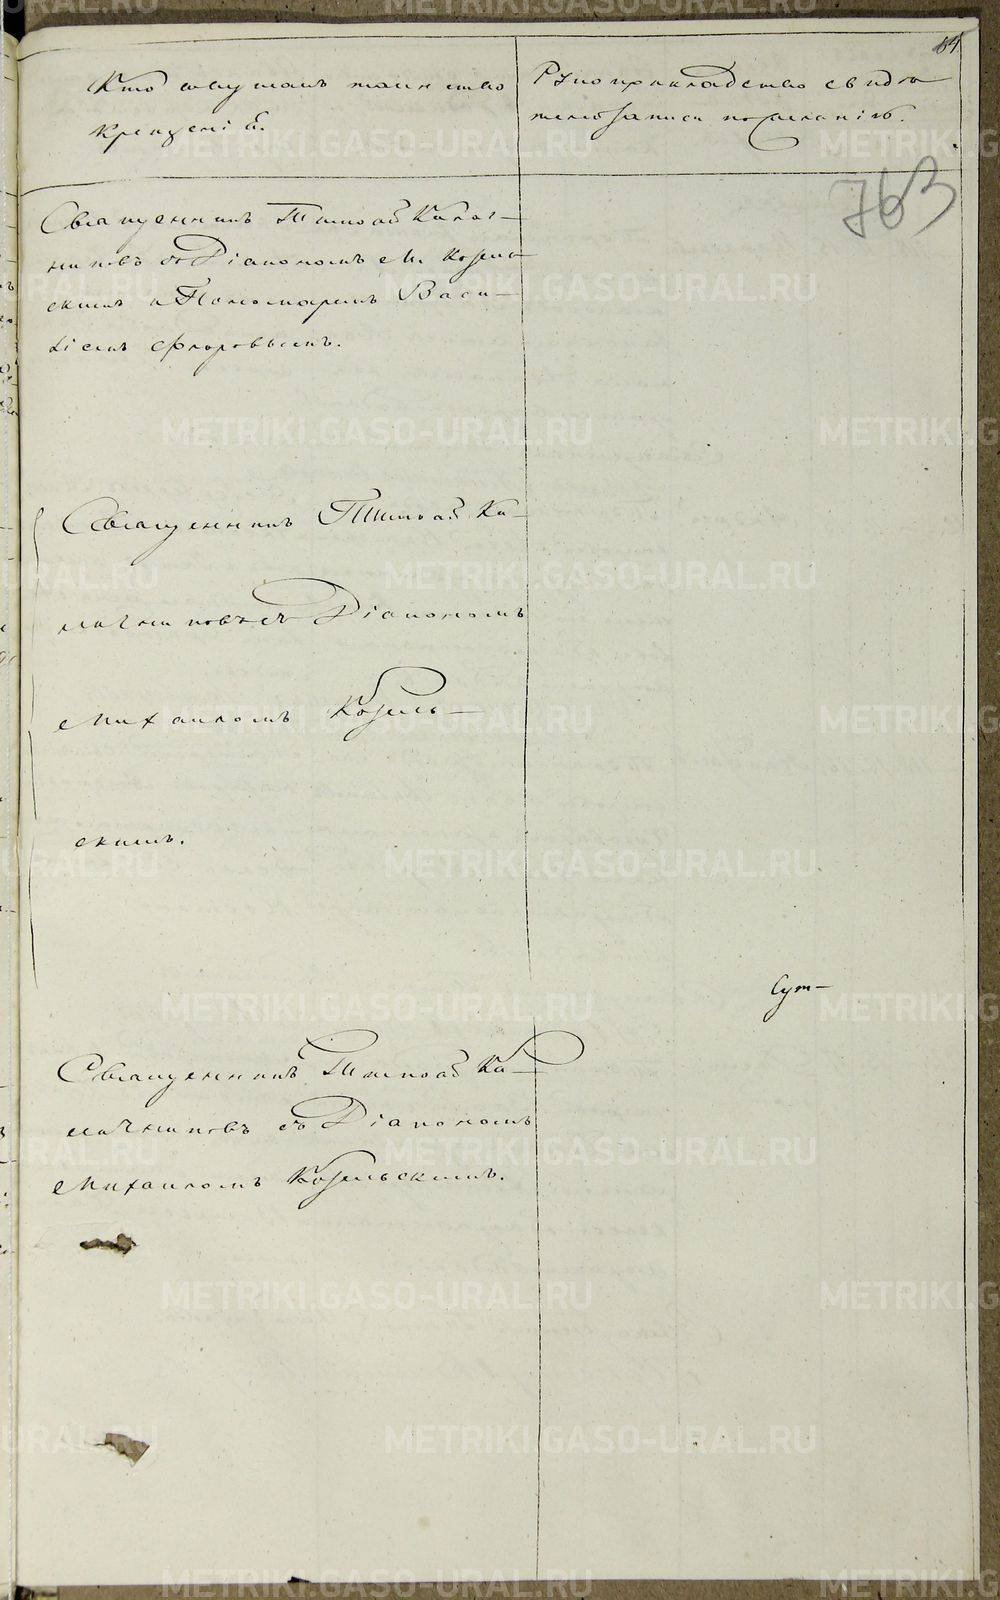 64
Кто совершалъ таинство
крещенiя.
Рукоприкладство свидѣ
телей записи по желанію.
763
Священникъ Тимоѳей Калач-
никовъ съ Діакономъ М. Козель
скимъ и Пономаремъ Васи-
ліемъ Флоровымъ.
Священникъ Тимоѳей Ка-
лачниковъ съ Діакономъ
Михаиломъ Козель-
скимъ.
Сут-
Священникъ Тимоѳей Ка-
лачниковъ съ Діакономъ
Михаиломъ Козельскимъ.
METRIKI.GASO-URAL.RU